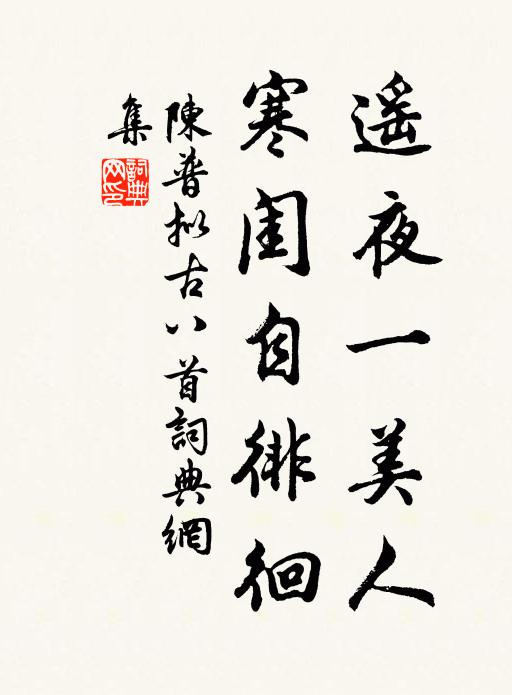 遥夜一美人
寒闺自徘徊
陳普拟古八首詞典網
集
詞典
网印